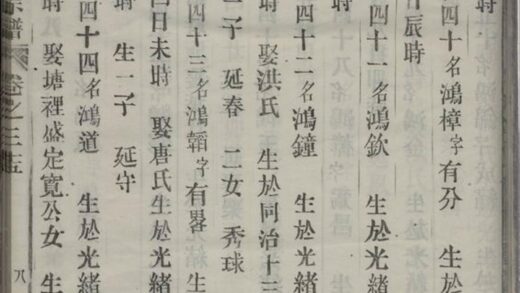 時
四十名鴻樟字有分 生於
日辰時
四十一名鴻欽 生於光緒
四十二名鴻鐘 生於光緒
時娶洪氏 生於同治十三
二子 延春 二女 秀球
四十三名鴻韜字有畧 生
四日未時 娶唐氏生於光緒
時 生二子 延守
四十四名鴻道 生於光緒
時 娶塘裡盛定寬公女 生
宗譜 卷之三 八